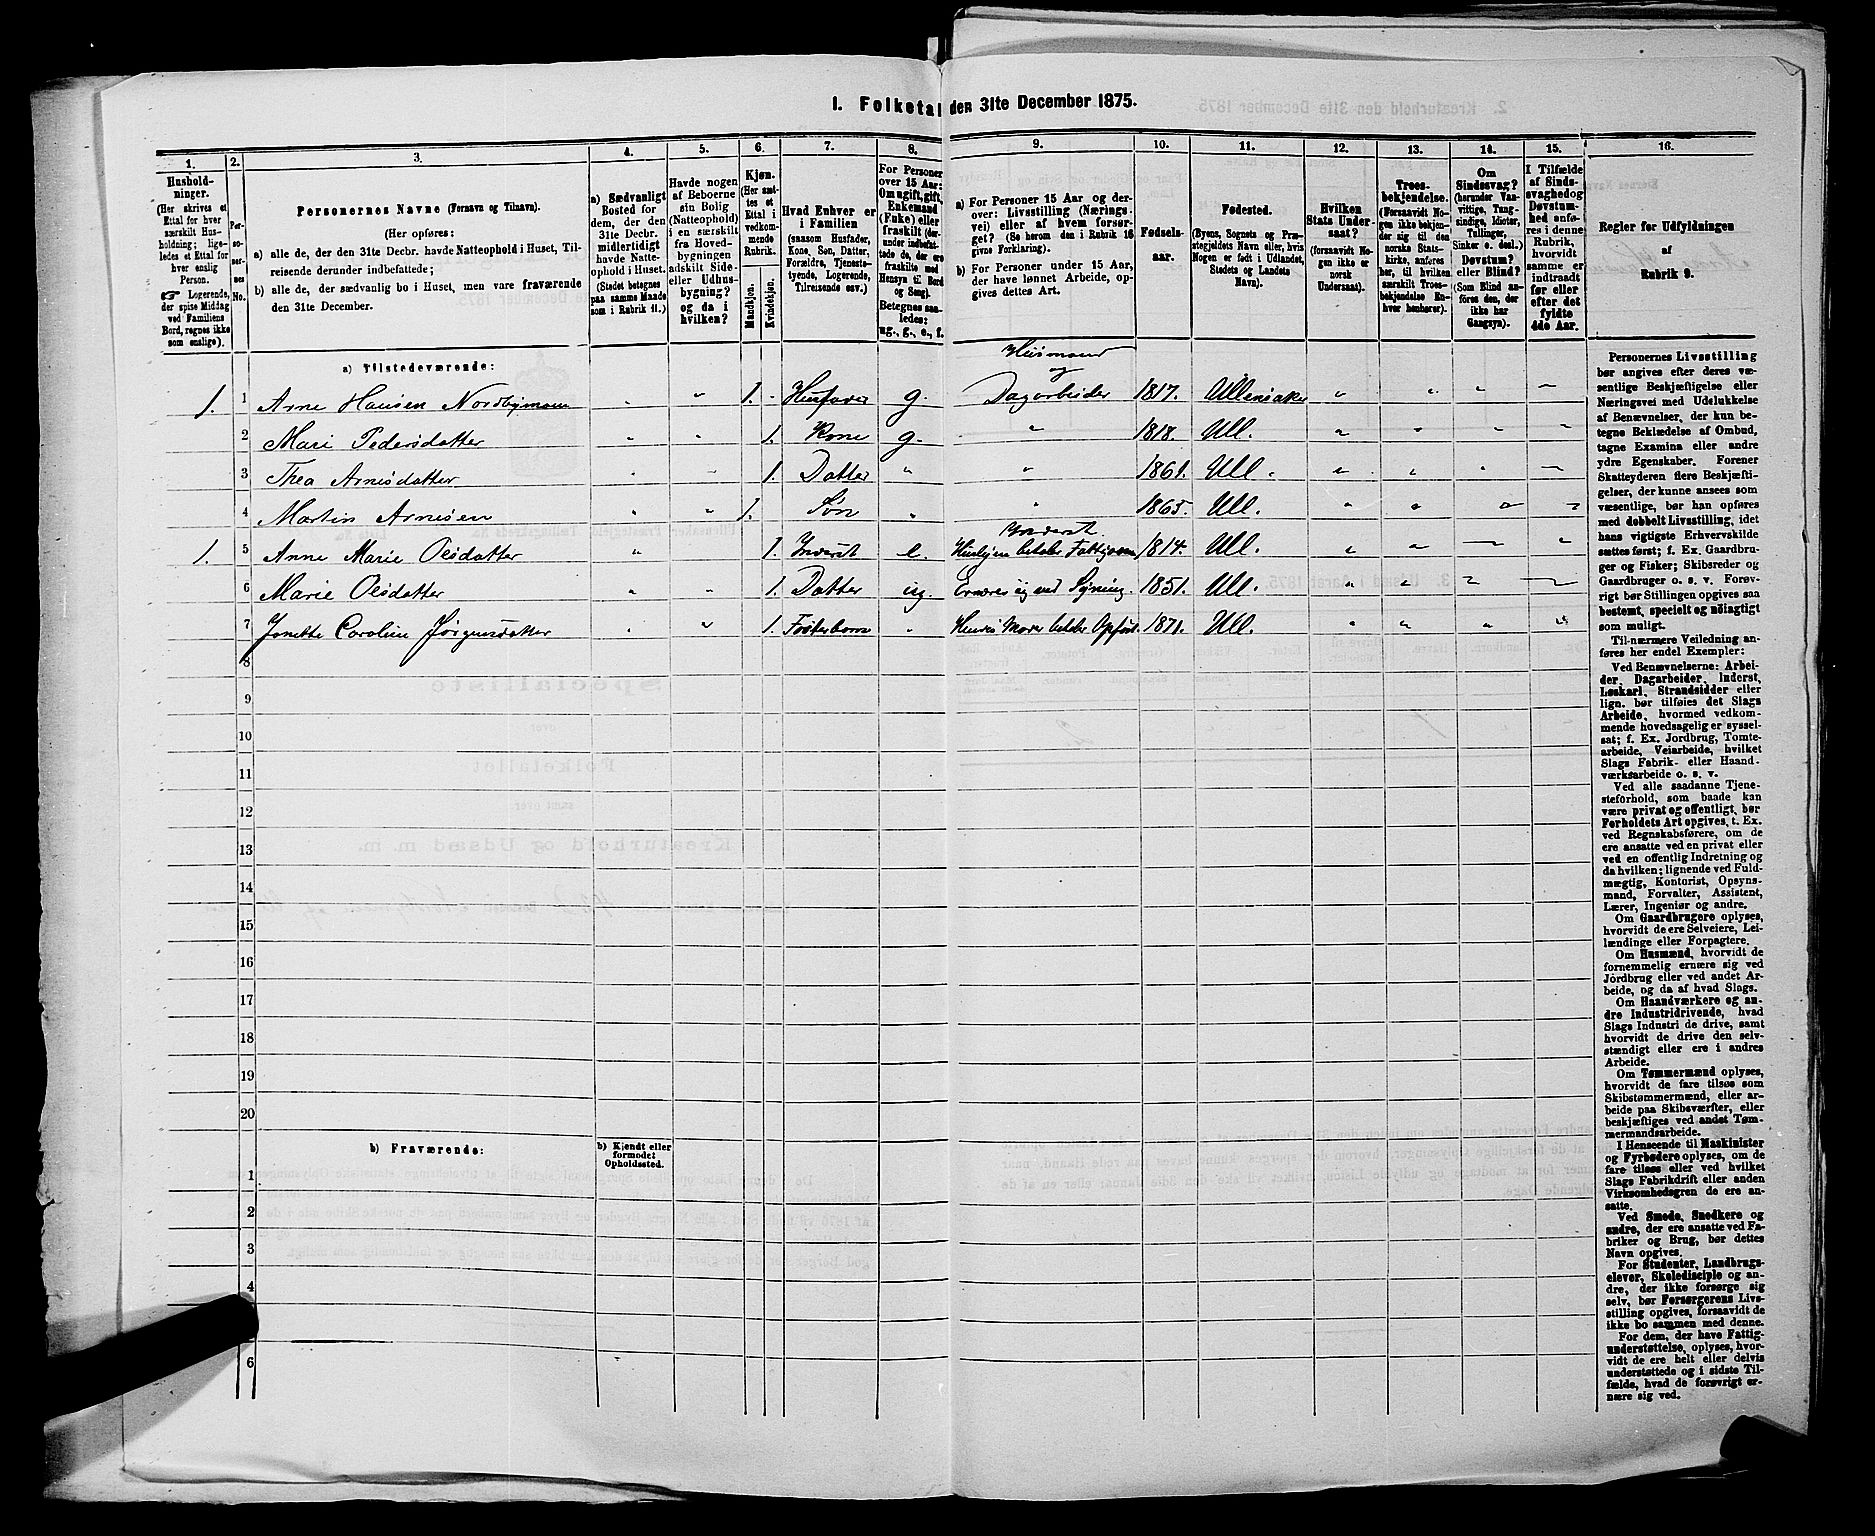 1. Folketal den 31te December 1875.
1. 2. 3. 4. 5. 6. 7. 8. 9. 10. 11. 12. 13. 14. 15. 16.
Husholdninger.
(Her skrives et
Ettal for hver
særskilt Husholdning;
ligeledes et Ettal for
hver enslig
Person.
☞ Logerende,
der spise Middag
ved Familiens
Bord, regnes ikke
som enslige).
Personernes No.
Personernes Navne (Fornavn og Tilnavn).
(Her opføres:
a) alle de, der den 31te Decbr. havde Natteophold i Huset, Tilreisende derunder indbefattede;
b) alle de, der sædvanlig bo i Huset, men vare fraværende
den 31te December.
a) Sædvanligt
Bosted for
dem, der den
31te Decbr.
midlertidigt
havde Natteophold i Huset.
(Stedet betegnes
paa samme Maade
som i Rubrik 11.)
Havde nogen
af Beboerne
sin Bolig
(Natteophold)
i en særskilt
fra Hovedbygningen
adskilt Side-
eller Udhusbygning?
og da i
hvilken?
Kjøn.
(Her sættes et
Ettal i
vedkommende
Rubrik.
Mandkjøn.
Kvindekjøn.
Hvad Enhver er
i Familien
(saasom Husfader,
Kone, Søn, Datter,
Forældre, Tjenestetyende, Logerende,
Tilreisende osv.)
For Personer
over 15 Aar:
Om ugift, gift,
Enkemand
(Enke) eller
fraskilt (derunder indbefattede de, der
ere fraskilte med
Hensyn til Bord
og Seng).
Betegnes saaledes:
ug., g., e., f.
a) For Personer 15 Aar og derover: Livsstilling (Næringsvei) eller af hvem forsørget? (Se herom den i Rubrik 16
givne Forklaring).
b) For Personer under 15 Aar,
der have lønnet Arbeide, opgives dettes Art.
Fødselsaar.
Fødested.
(Byens, Sognets og Præstegjeldets Navn eller, hvis
Nogen er født i Udlandet,
Stedets og Landets
Navn).
Hvilken
Stats Undersaat?
(forsaavidt Nogen ikke er
norsk
Undersaat).
Troesbekjendelse.
(Forsaavidt Nogen ikke bekjender sig til den
norske Statskirke, anføres
her, til hvilken
særskilt Troesbekjendelse Enhver henhører).
Om
Sindssvag?
(herunder Vanvittige, Tungsindige, Idioter,
Tullinger,
Sinker o. desl.)
Døvstum?
eller Blind?
(Som Blind anføres den, der
ikke har
Gangsyn).
I Tilfælde
af Sindssvaghed og
Døvstumhed anføres i denne
Rubrik,
hvorvidt
samme er
indtraadt
før eller
efter det
fyldte
4de Aar.
Regler for Udfyldningen
af
Rubrik 9.
a) Tilstedeværende:
1. 1 Arne Hansen Nordbymoen 1. Husfader g. Husmand og Dagarbeider 1817. Ullensaker
2 Mari Pedersdatter 1. Kone g. 1818. Ull.
3 Thea Arnesdatter 1. Datter 1861. Ull.
4 Martin Arnesen 1. Søn 1865. Ull.
1. 5 Anne Marie Olsdatter 1. Inderst e. Inderst. Huslejen betaler Fattigvæs. 1814. Ull.
6 Marie Olsdatter 1. Datter ug. Ernærer sig ved Syning. 1851. Ull.
7 Janette Caroline Jørgensdatter 1. Fosterbarn Hendes Moder betaler Opfost. 1871. Ull.
8
9
10
11
12
13
14
15
16
17
18
19
20
b) Fraværende:
b) Kjendt eller
formodet
Opholdssted.
1
2
3
4
6
Personernes Livsstilling
bør angives efter deres væsentlige Beskjæftigelse eller
Næringsvei med Udelukkelse
af Benævnelser, der kun betegne Beklædelse af Ombud,
tagne Examina eller andre
ydre Egenskaber. Forener
Skatteyderen flere Beskjæftigelser, der kunne ansees som
væsentlige, bør han opføres
med dobbelt Livsstilling, idet
hans vigtigste Erhvervskilde
sættes først; f. Ex. Gaardbruger og Fisker; Skibsreder og
Gaardbruger o. s. v. Forøvrigt bør Stillingen opgives saa
bestemt, specielt og nøiagtigt
som muligt.
Til nærmere Veiledning anføres her endel Exempler:
Ved Benævnelserne: Arbeider, Dagarbeider, Inderst,
Løskarl, Strandsidder eller
lign. bør tilføies det Slags
Arbeide, hvormed vedkommende hovedsagelig er sysselsat; f. Ex. Jordbrug, Tomtearbeide, Veiarbeide, hvilket
Slags Fabrik- eller Haandværksarbeide o. s. v.
Ved alle saadanne Tjenesteforhold, som baade kan
være privat og offentligt, bør
Forholdets Art opgives, t. Ex.
ved Regnskabsførere, om de
ere ansatte ved en privat eller
ved en offentlig Indretning og
da hvilken; lignende ved Fuldmægtig, Kontorist, Opsynsmand, Forvalter, Assistent,
Lærer, Ingeniør og andre.
Om Gaardbrugere oplyses,
hvorvidt de ere Selveiere, Leilændinge eller Forpagtere.
Om Husmænd, hvorvidt de
fornemmelig ernære sig ved
Jordbrug eller ved andet Arbeide, og da af hvad Slags.
Om Haandværkere og andre Industridrivende, hvad
Slags Industri de drive, samt
hvorvidt de drive den selvstændigt eller ere i andres
Arbeide.
Om Tømmermænd oplyses,
hvorvidt de fare tilsøs som
Skibstømmermænd, eller arbeide paa Skibsværfter, eller
beskjæftiges ved andet Tømmermandsarbeide.
I Henseende til Maskinister
og Fyrbødere oplyses, om de
fare tilsøs eller ved hvilket
Slags Fabrikdrift eller anden
Virksomhedsgren de ere ansatte.
Ved Smede, Snedkere og
andre, der ere ansatte ved Fabriker og Brug, bør dettes
Navn opgives.
For Studenter, Landbrugselever, Skoledisciple og andre, der ikke forsørge sig
selv, bør Forsørgerens Livsstilling opgives, forsaavidt de
ikke bo sammen med denne.
For dem, der have Fattigunderstøttelse, oplyses, hvorvidt de ere helt eller delvis
understøttede og i sidste Tilfælde, hvad de forøvrigt ernære sig ved.